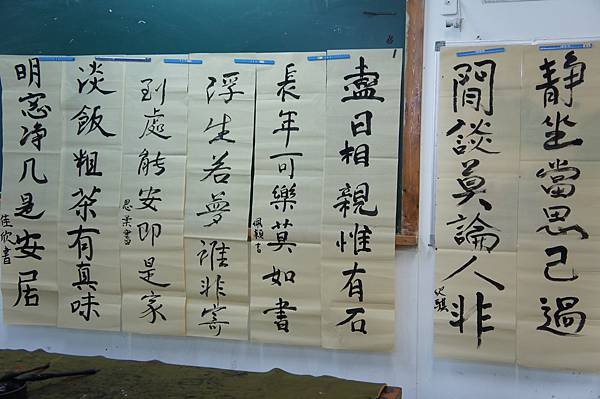 静坐當思己過
閒談莫論人非
盡日相親惟有石
長年可樂莫如書
佩穎書
浮生若夢誰非寄
到處能安即是家
思柔書
淡飯粗茶有真味
明窓净几是安居
佳欣書